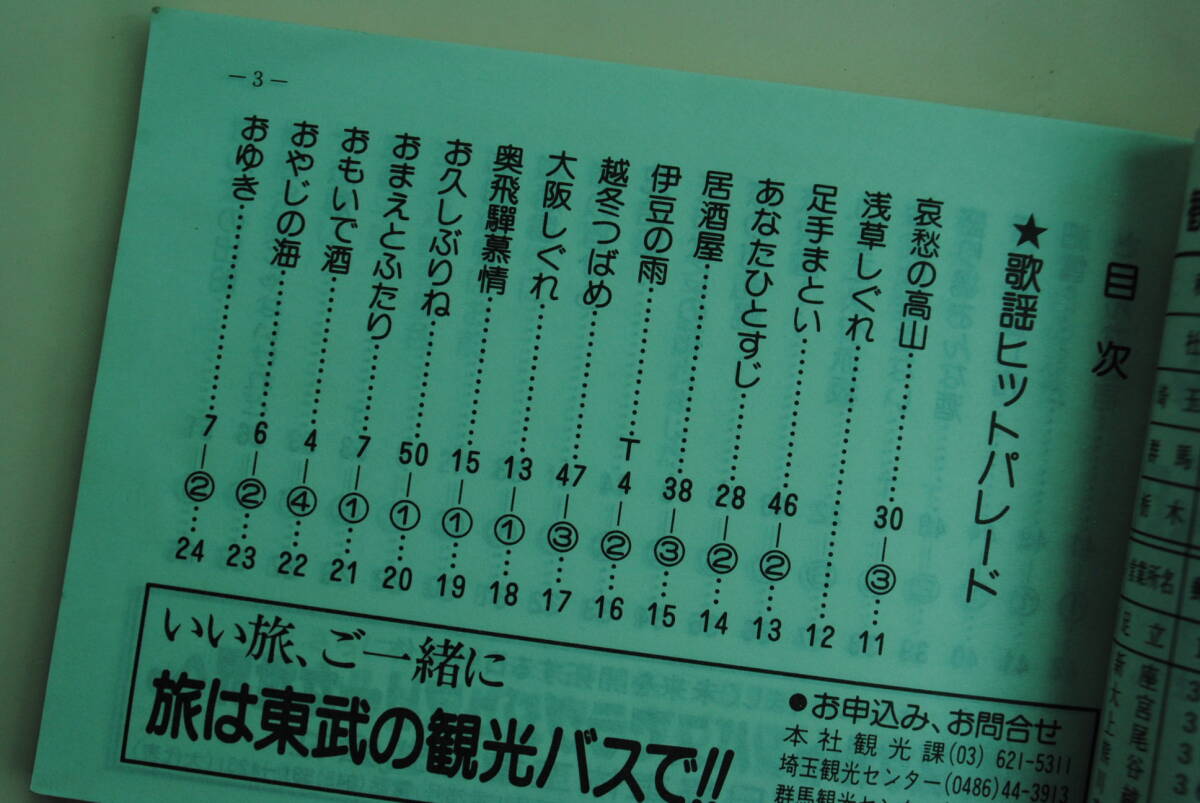 目次
★歌謡ヒットパレード
哀愁の高山……30―③…11
浅草しぐれ……12
足手まとい……46―②…13
あなたひとすじ……28―②…14
居酒屋……38―③…15
伊豆の雨……T4―②…16
越冬つばめ……47―③…17
大阪しぐれ……13―①…18
奥飛驒慕情……15―①…19
お久しぶりね……50―①…20
おまえとふたり……7―①…21
おもいで酒……4―④…22
おやじの海……6―②…23
おゆき……7―②…24
―3―
いい旅、ご一緒に
旅は東武の観光バスで!!
●お申込み、お問合せ
本社観光課(03)621-5311
埼玉観光センター(0486)44-3913
群馬観光センター
埼玉
群馬
栃木
営業所名
足立